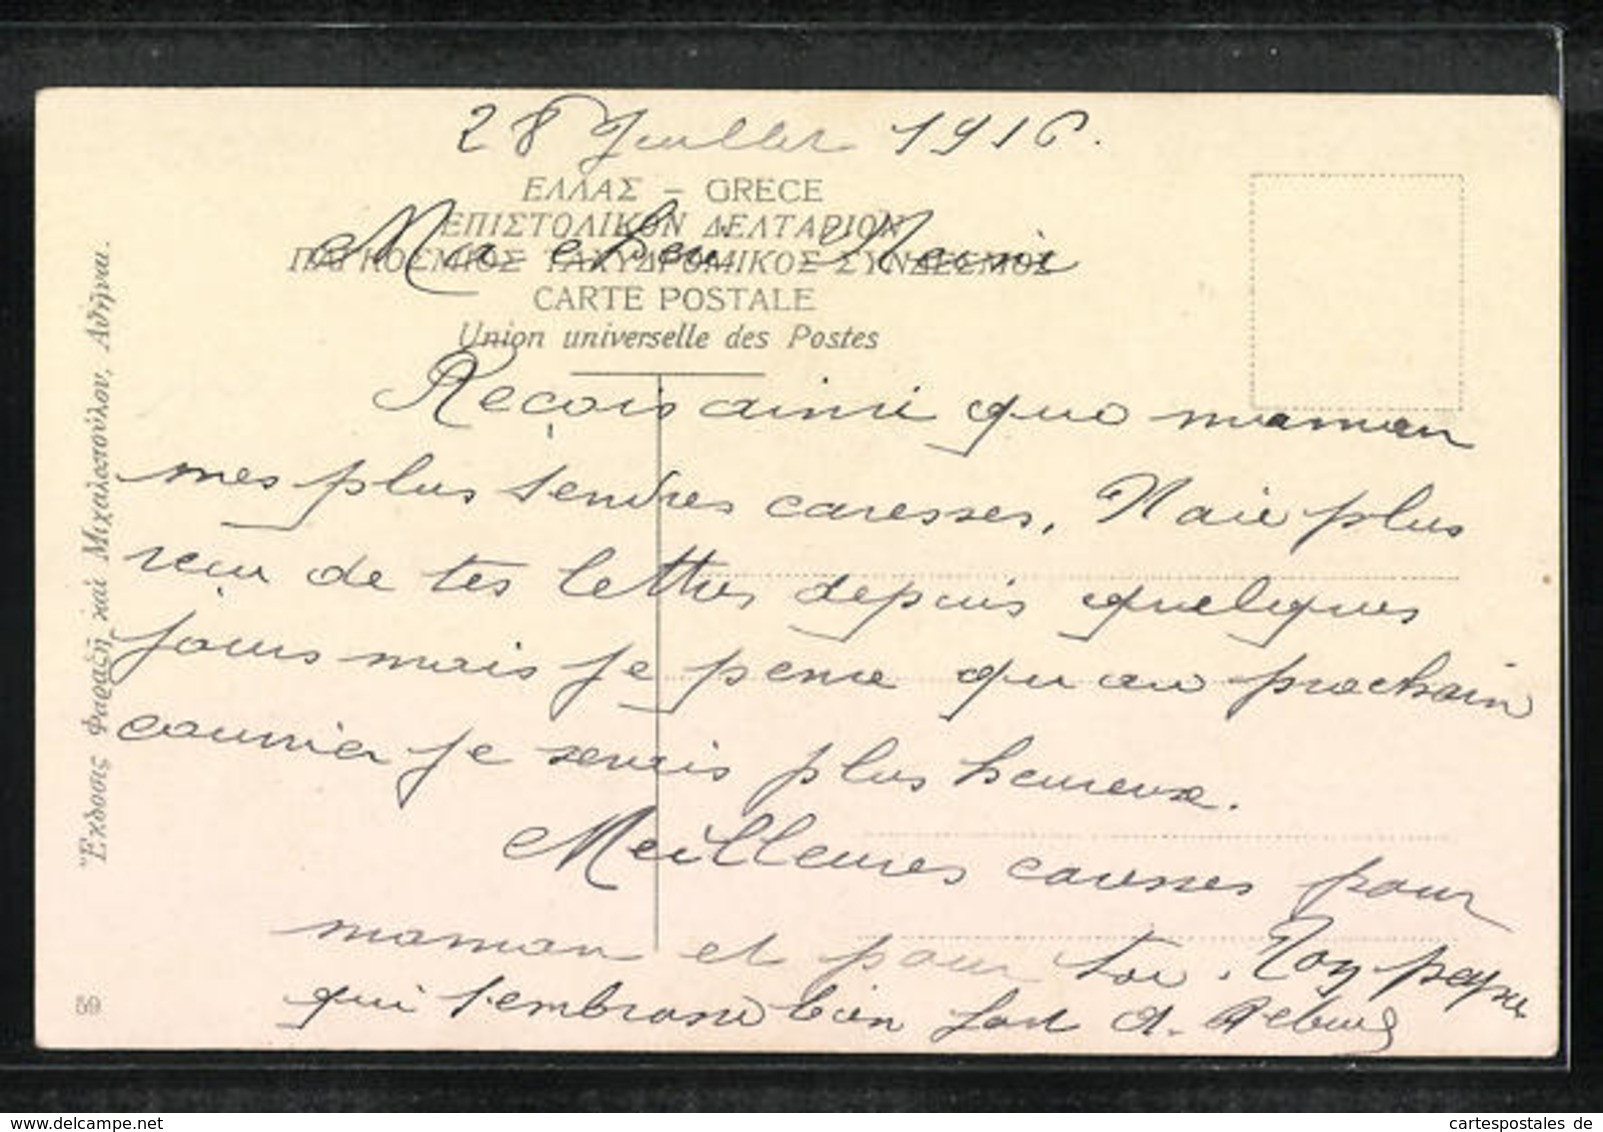 28 Juillet 1916.
ΕΛΛΑΣ – GRECE
ΕΠΙΣΤΟΛΙΚΟΝ ΔΕΛΤΑΡΙΟΝ
Ma
ΠΑΓΚΟΣΜΙΟΣ ΤΑΧΥΔΡΟΜΙΚΟΣ ΣΥΝΔΕΣΜΟΣ
CARTE POSTALE
Union universelle des Postes
Reçois ainsi que maman
mes plus tendres caresses. N'aie plus
reçu de tes lettres depuis quelques
jours mais je pense qu'au prochain
courrier je serais plus heureux.
Meilleures caresses pour
maman et pour toi. Ton papa
qui t'embrasse bien fort
Ἔκδοσις Φαραζῆ καὶ Μιχαλοπούλου, Ἀθῆναι.
59
www.cartespostales.de
www.cartespostales.de